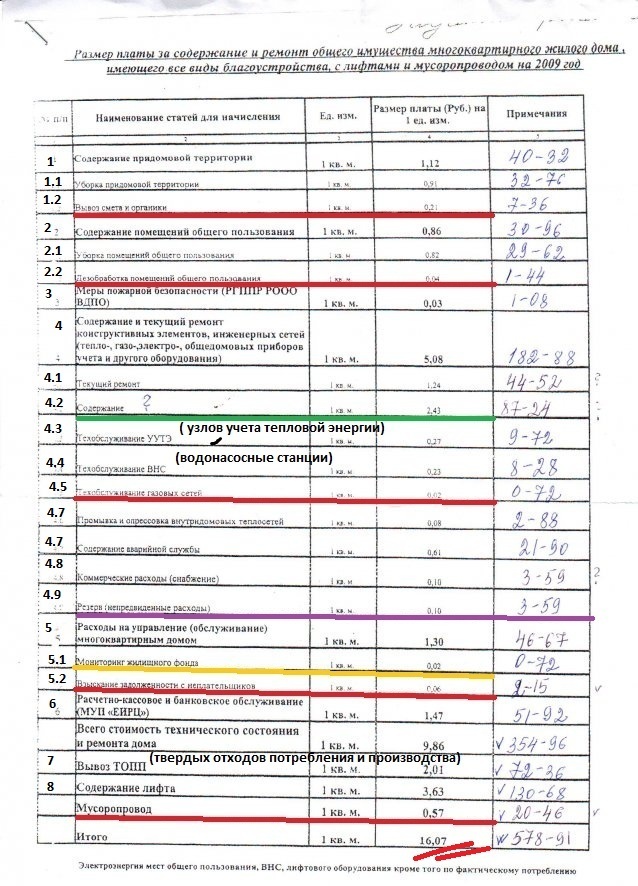 Размер платы за содержание и ремонт общего имущества многоквартирного жилого дома,
имеющего все виды благоустройства, с лифтами и мусоропроводом на 2009 год
№ п/п Наименование статей для начисления Ед. изм. Размер платы (Руб.) на 1 ед. изм. Примечания
2 3 4 5
1 Содержание придомовой территории 1 кв. м. 1,12 40-32
1.1 Уборка придомовой территории 1 кв. м. 0,91 32-76
1.2 Вывоз смета и органики 1 кв. м. 0,21 7-36
2 Содержание помещений общего пользования 1 кв. м. 0,86 30-96
2.1 Уборка помещений общего пользования 1 кв. м. 0,82 29-62
2.2 Дезобработка помещений общего пользования 1 кв. м. 0,04 1-44
3 Меры пожарной безопасности (РГППР РООО
ВДПО) 1 кв. м. 0,03 1-08
4 Содержание и текущий ремонт
конструктивных элементов, инженерных сетей
(тепло-, газо-,электро-, общедомовых приборов
учета и другого оборудования) 1 кв. м. 5,08 182-88
4.1 Текущий ремонт 1 кв. м. 1,24 44-52 ?
4.2 Содержание ? 1 кв. м. 2,43 87-24
( узлов учета тепловой энергии)
4.3 Техобслуживание УУТЭ 1 кв. м. 0,27 9-72
(водонасосные станции)
4.4 Техобслуживание ВНС 1 кв. м. 0,23 8-28
4.5 Техобслуживание газовых сетей 1 кв. м. 0,02 0-72
4.7 Промывка и опрессовка внутридомовых теплосетей 1 кв. м. 0,08 2-88
4.7 Содержание аварийной службы 1 кв. м. 0,61 21-90
4.8 Коммерческие расходы (снабжение) 1 кв. м. 0,10 3-59 ?
4.9 Резерв (непредвиденные расходы) 1 кв. м. 0,10 3-59
5 Расходы на управление (обслуживание)
многоквартирным домом 1 кв. м. 1,30 46-67
5.1 Мониторинг жилищного фонда 1 кв. м. 0,02 0-72
5.2 Взыскание задолженности с неплательщиков 1 кв. м. 0,06 2-15
6 Расчетно-кассовое и банковское обслуживание
(МУП «ЕИРЦ») 1 кв. м. 1,47 51-92
Всего стоимость технического состояния
и ремонта дома 1 кв. м. 9,86 354-96
(твердых отходов потребления и производства)
7 Вывоз ТОПП 1 кв. м. 2,01 72-36
8 Содержание лифта 1 кв. м. 3,63 130-68
Мусоропровод 1 кв. м. 0,57 20-46
Итого 1 кв. м. 16,07 578-91
Электроэнергия мест общего пользования, ВНС, лифтового оборудования кроме того по фактическому потреблению